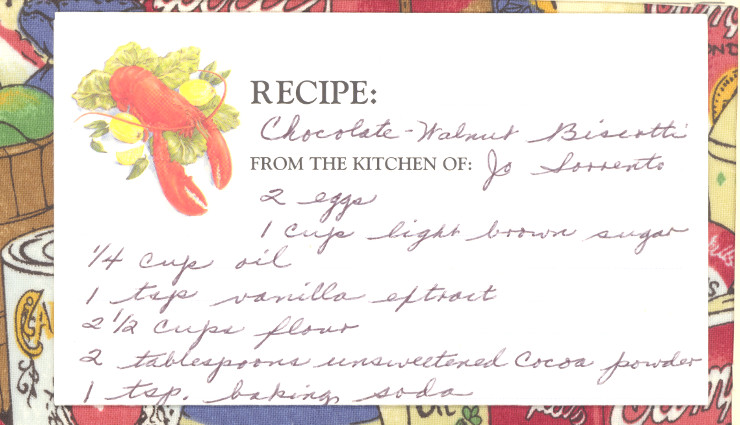 RECIPE:
Chocolate-Walnut Biscotti
FROM THE KITCHEN OF: Jo Sorrento
2 eggs
1 cup light brown sugar
1/4 cup oil
1 tsp vanilla extract
2 1/2 cups flour
2 tablespoons unsweetened cocoa powder
1 tsp. baking soda